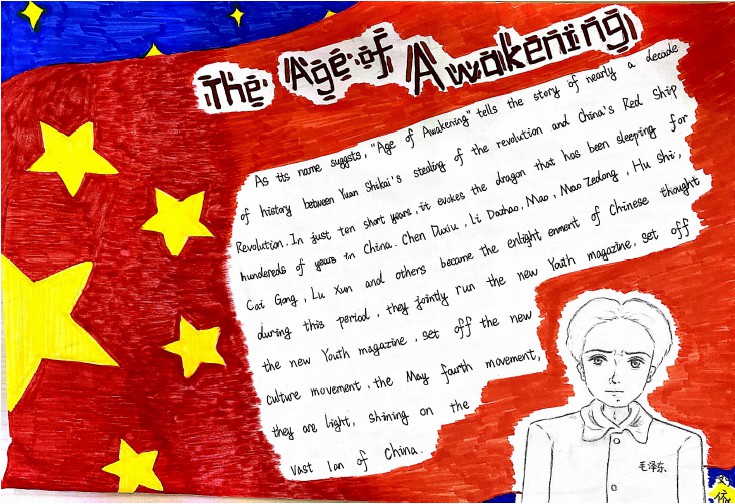 The Age of Awakening
As its name suggsts, "Age of Awakening" tells the story of nearly a decade
of history between Yuan Shikai's stealing of the revolution and China's Red Ship
Revolution. In just ten short years, it evokes the dragon that has been sleeping for
hundereds of years in China. Chen Duxiu, Li Dazhao, Mao, Mao Zedong, Hu Shi,
Cai Gang, Lu Xun and others became the enlight enment of Chinese thought
during this period, they jointly run the new Youth magazine, set off
the new Youth magazine, set off the new
culture movement, the May fourth movement,
they are light, shining on the
vast lan of China.
毛泽东